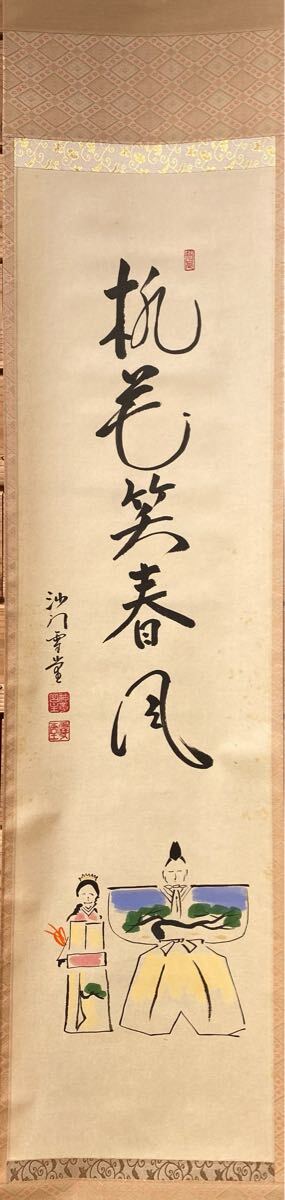 桃花笑春風
沙門雪堂